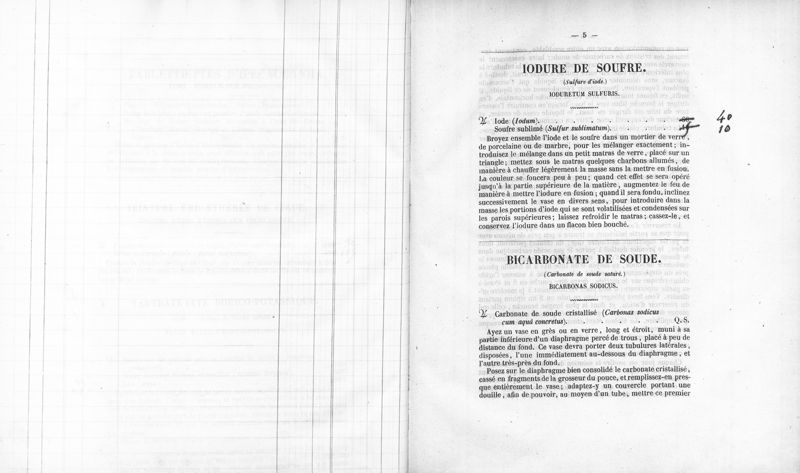 — 5 —
IODURE DE SOUFRE.
(Sulfure d'iode.)
IODURETUM SULFURIS.
Iode (Iodum). . . . . . . . 40
Soufre sublimé (Sulfur sublimatum). . . . . 10
Broyez ensemble l'iode et le soufre dans un mortier de verre,
de porcelaine ou de marbre, pour les mélanger exactement ; in-
troduisez le mélange dans un petit matras de verre, placé sur un
triangle ; mettez sous le matras quelques charbons allumés, de
manière à chauffer légèrement la masse sans la mettre en fusion.
La couleur se foncera peu à peu ; quand cet effet se sera opéré
jusqu'à la partie supérieure de la matière, augmentez le feu de
manière à mettre l'iodure en fusion ; quand il sera fondu, inclinez
successivement le vase en divers sens, pour introduire dans la
masse les portions d'iode qui se sont volatilisées et condensées sur
les parois supérieures ; laissez refroidir le matras ; cassez-le, et
conservez l'iodure dans un flacon bien bouché.
BICARBONATE DE SOUDE.
(Carbonate de soude saturé.)
BICARBONAS SODICUS.
Carbonate de soude cristallisé (Carbonas sodicus
cum aquâ concretus). . . . . . . Q.S.
Ayez un vase en grès ou en verre, long et étroit, muni à sa
partie inférieure d'un diaphragme percé de trous, placé à peu de
distance du fond. Ce vase devra porter deux tubulures latérales,
disposées, l'une immédiatement au-dessous du diaphragme, et
l'autre très-près du fond.
Posez sur le diaphragme bien consolidé le carbonate cristallisé,
cassé en fragments de la grosseur du pouce, et remplissez-en pres-
que entièrement le vase ; adaptez-y un couvercle portant une
douille, afin de pouvoir, au moyen d'un tube, mettre ce premier